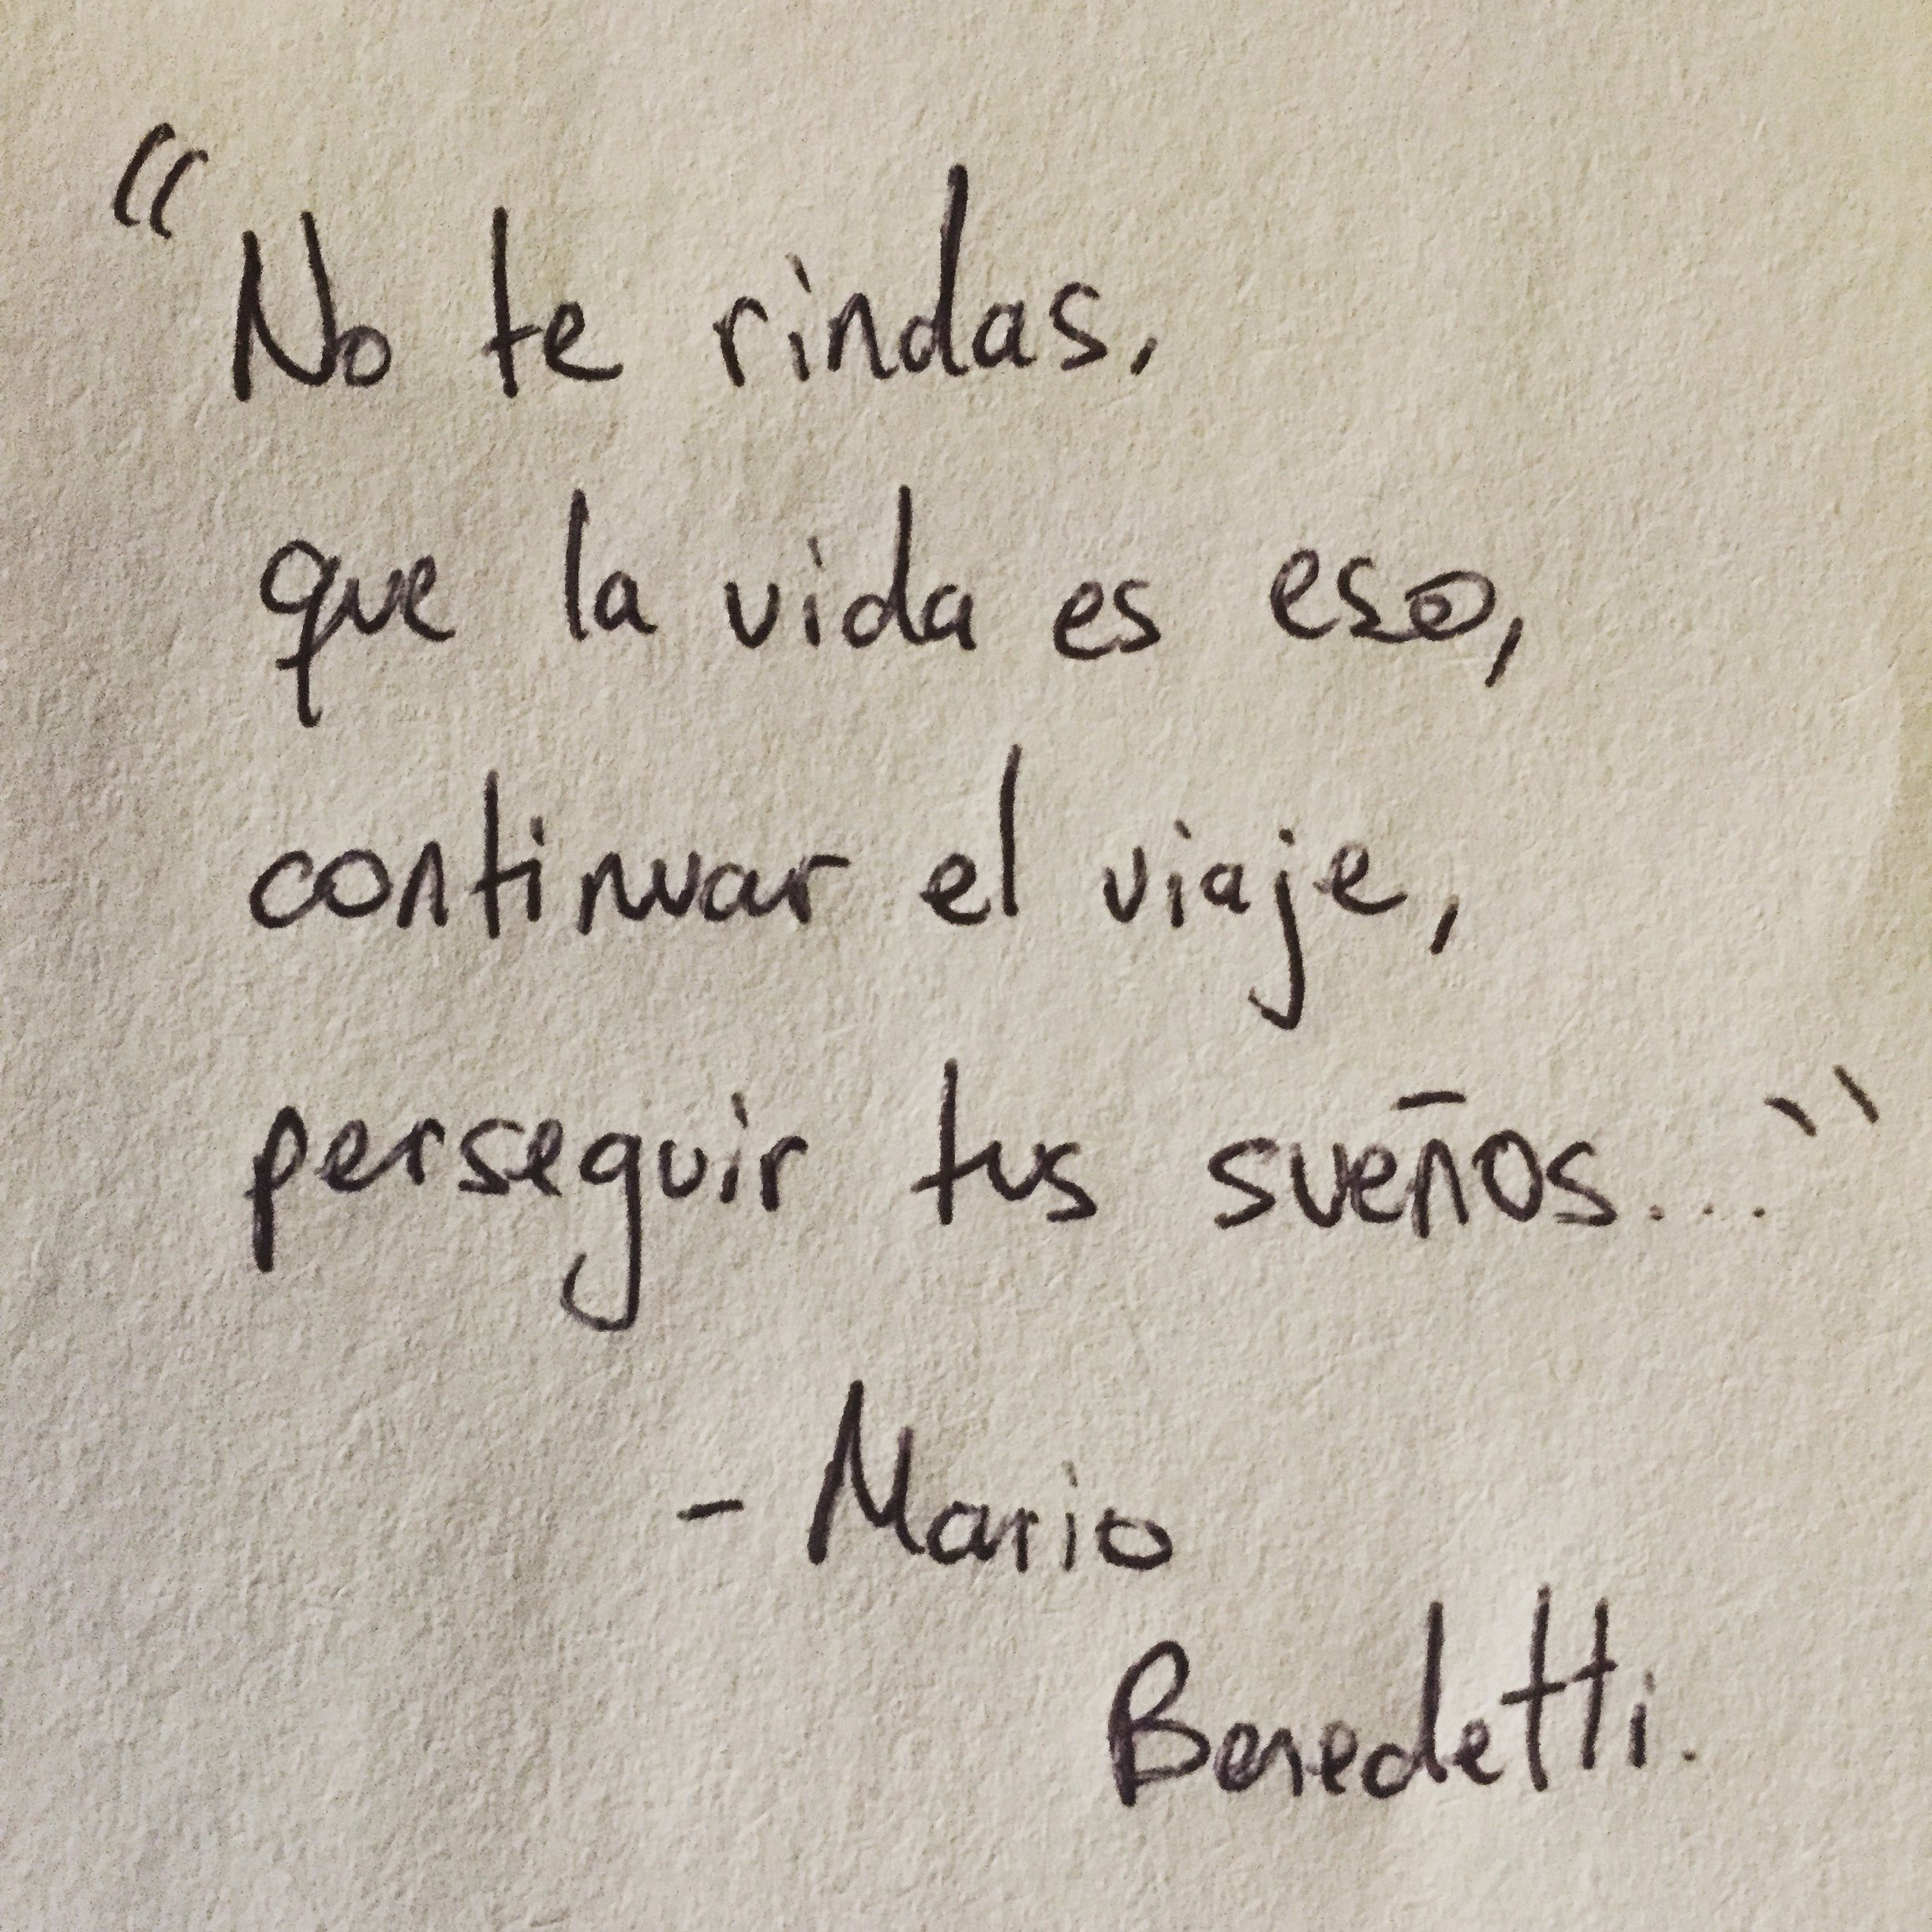 “No te rindas,
que la vida es eso,
continuar el viaje,
perseguir tus sueños...”
- Mario
Benedetti.